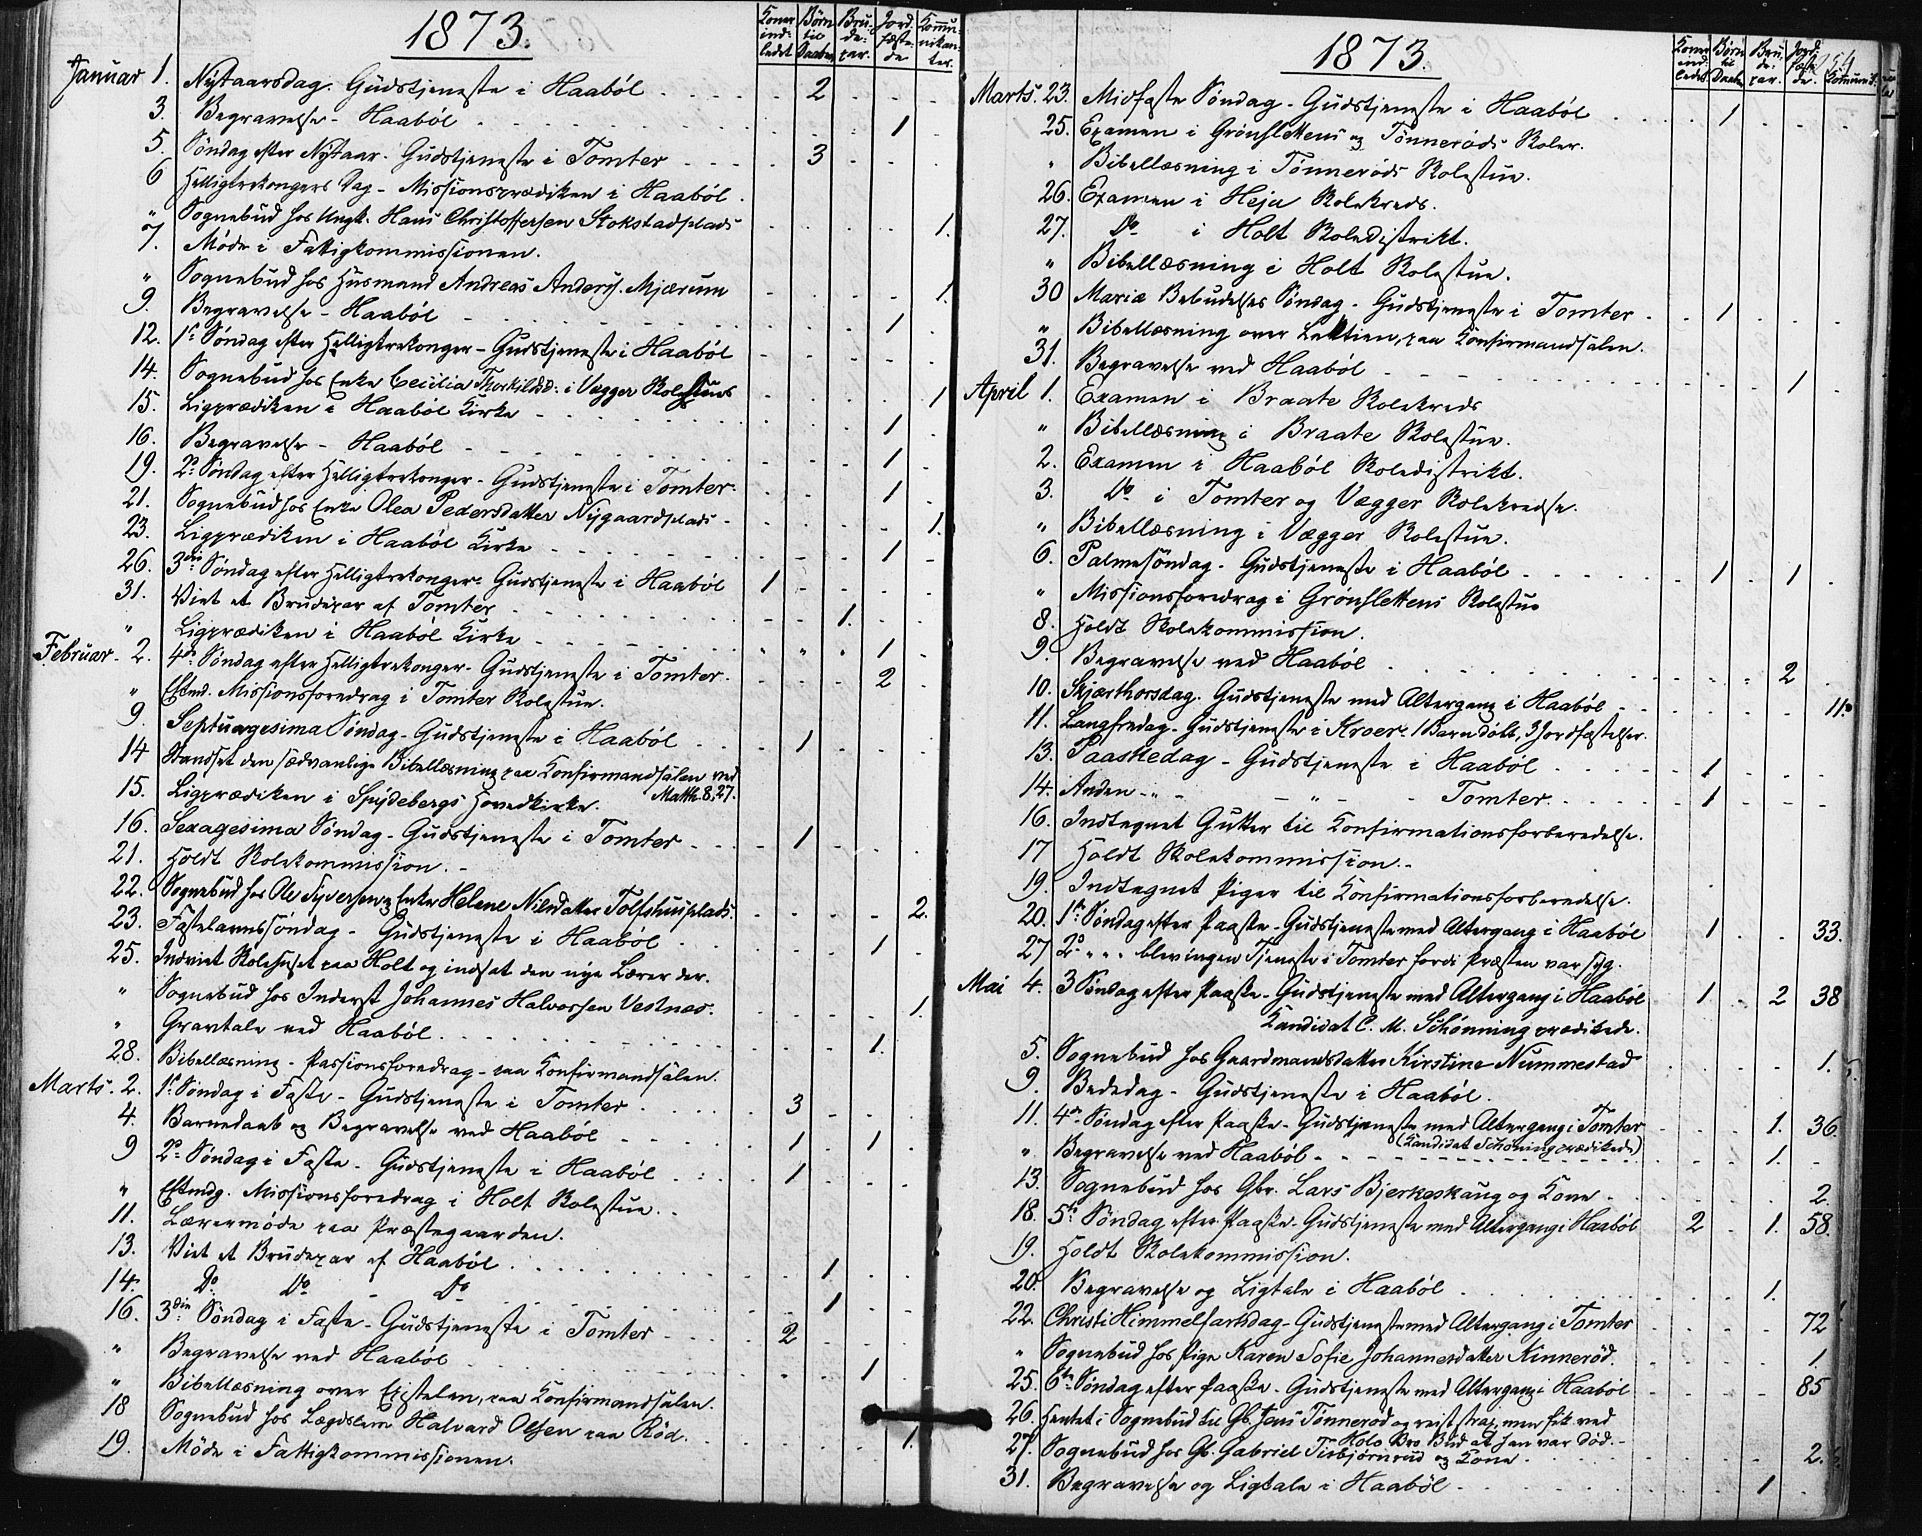 1873.
Koner ind- ledet | Børn til Daaben | Bru- de- par. | Jord- fæste- de | Kommu- nikan- ter.
Januar 1. Nytaarsdag. Gudstjeneste i Haabøl 2
3. Begravelse - Haabøl 1
5. Søndag efter Nytaar. Gudstjeneste i Tomter 3
6 Helligtrekongers Dag - Missionsprædiken i Haabøl.
" Sognebud hos Ungk. Hans Christoffersen Stokstadplads 1.
7. Møde i Fattigkommissionen.
" Sognebud hos Husmand Andreas Anders. Mjærum 1.
9. Begravelse - Haabøl 1
12. 1ste Søndag efter Helligtrekonger - Gudstjeneste i Haabøl
14. Sognebud hos Enke Cecilia Thorkildsd. i Vegger Skolestue 1
15. Ligprædiken i Haabøl Kirke 1
16. Begravelse - Haabøl 1
19. 2den Søndag efter Helligtrekonger - Gudstjeneste i Tomter. 1
21. Sognebud hos Enke Olea Pedersdatter Nygaardsplads 1.
23. Ligprædiken i Haabøl Kirke 1
26. 3die Søndag efter Helligtrekonger. Gudstjeneste i Haabøl 1
31. Viet et Brudepar af Tomter 1.
" Ligprædiken i Haabøl Kirke 1
Februar. 2. 4de Søndag efter Helligtrekonger. Gudstjeneste i Tomter. 2
" Eftmd. Missionsforedrag i Tomter Skolestue.
9. Septuagesima Søndag - Gudstjeneste i Haabøl 1
14 Standset den sædvanlige Bibellæsning paa Konfirmandsalen ved
Matth. 8,27.
15. Ligprædiken i Spydebergs Hovedkirke.
16. Sexagesima Søndag - Gudstjeneste i Tomter 1
21. Holdt Skolekommission.
22. Sognebud hos Ole Syversen og Enke Helene Nilsdatter Tolfshusplads. 2.
23. Fastelavnssøndag - Gudstjeneste i Haabøl 1
25. Indviet Skolehuset paa Holt og indsat den nye Lærer der.
" Sognebud hos Inderst Johannes Halvorsen Vestnæs. 1.
" Gravtale ved Haabøl. 1.
28. Bibellæsning - Passionsforedrag - paa Konfirmandsalen.
Marts. 2. 1ste Søndag i Faste - Gudstjeneste i Tomter 3
4. Barnedaab og Begravelse ved Haabøl 1 1
9 2den Søndag i Faste - Gudstjeneste i Haabøl 1
" Eftmdg. Missionsforedrag i Holt Skolestue.
11. Lærermøde paa Præstegaarden.
13. Viet et Brudepar af Haabøl 1
14. Do Do Do 1
16. 3die Søndag i Faste - Gudstjeneste i Tomter 2
" Begravelse ved Haabøl 1
" Bibellæsning over Epistelen, paa Konfirmandsalen.
18 Sognebud hos Lægdslem Halvard Olsen paa Rød. 1.
19. Møde i Fattigkommissionen.
1873.
Kone ind- ledet | Børn til Daaben | Bru- de- par. | Jord- fæste- de. | Kommunik.
Marts. 23. Midfaste Søndag - Gudstjeneste i Haabøl 1
25. Examen i Grønslettens og Tønnerøds Skoler.
" Bibellæsning i Tønnerøds Skolestue.
26. Examen i Heja Skolekreds.
27. Do i Holt Skoledistrikt.
" Bibellæsning i Holt Skolestue.
30 Mariæ Bebudelses Søndag - Gudstjeneste i Tomter 1
" Bibellæsning over Lektien, paa Konfirmandsalen.
31. Begravelse ved Haabøl 1
April 1. Examen i Braate Skolekreds
" Bibellæsning i Braate Skolestue.
2. Examen i Haabøl Skoledistrikt.
3. Do i Tomter og Vegger Skolekredse.
" Bibellæsning i Vægger Skolestue.
6. Palmesøndag - Gudstjeneste i Haabøl 1 1
" Missionsforedrag i Grønslettens Skolestue
8. Holdt Skolekommission.
9. Begravelse ved Haabøl 2
10. Skjærthorsdag. Gudstjeneste med Altergang i Haabøl 11.
11. Langfredag - Gudstjeneste i Kroer. 1 Barn døbt, 3 Jordfæstelser.
13. Paaskedag - Gudstjeneste i Haabøl 1
14. Anden " " Tomter. 1
16. Indtegnet Gutter til Konfirmationsforberedelse.
17 Holdt Skolekommission.
19. Indtegnet Piger til Konfirmationsforberedelse.
20. 1ste Søndag efter Paaske - Gudstjeneste med Altergang i Haabøl 1 33.
27 2den " " " blev ingen Tjeneste i Tomter fordi Præsten var syg.
Mai 4. 3 Søndag efter Paaske - Gudstjeneste med Altergang i Haabøl 1 2 38
Kandidat C. M. Schønning prædikede.
5. Sognebud hos Gaardmandsdatter Kirstine Nummestad 1.
9. Bededag - Gudstjeneste i Haabøl.
11. 4de Søndag efter Paaske - Gudstjeneste med Altergang i Tomter 1. 36
(Kandidat Schønning prædikede)
" Begravelse ved Haabøl 1.
13. Sognebud hos Gbr. Lars Bjerkeskaug og Kone 2
18. 5te Søndag efter Paaske - Gudstjeneste med Altergang i Haabøl 2 1. 58.
19. Holdt Skolekommission.
20. Begravelse og Ligtale i Haabøl 1.
22. Christi Himmelfartsdag - Gudstjeneste med Altergang i Tomter 72
" Sognebud hos Pige Karen Sofie Johannesdatter Kinnerød. 1
25. 6te Søndag efter Paaske - Gudstjeneste med Altergang i Haabøl 85
26. Hentet i Sognebud til Gb. Jens Tønnerød og reist strax, men fik ved
Hobø Bro Bud at han var død.
27. Sognebud hos Gb. Gabriel Tisbjørnrud og Kone 2.
31. Begravelse og Ligtale i Haabøl 1